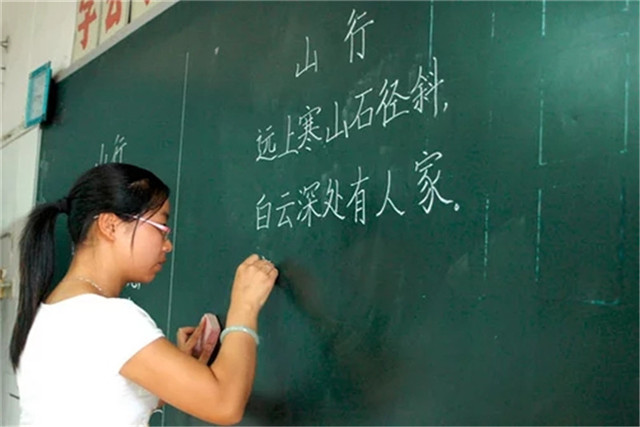 山行
远上寒山石径斜，
白云深处有人家。
山行